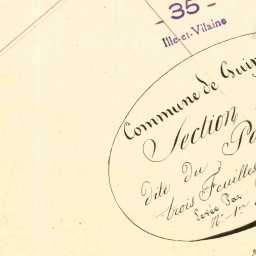 - 35 -
Ille-et-Vilaine
Commune de Gui
Section
dite du
trois Feuilles
N° 1er